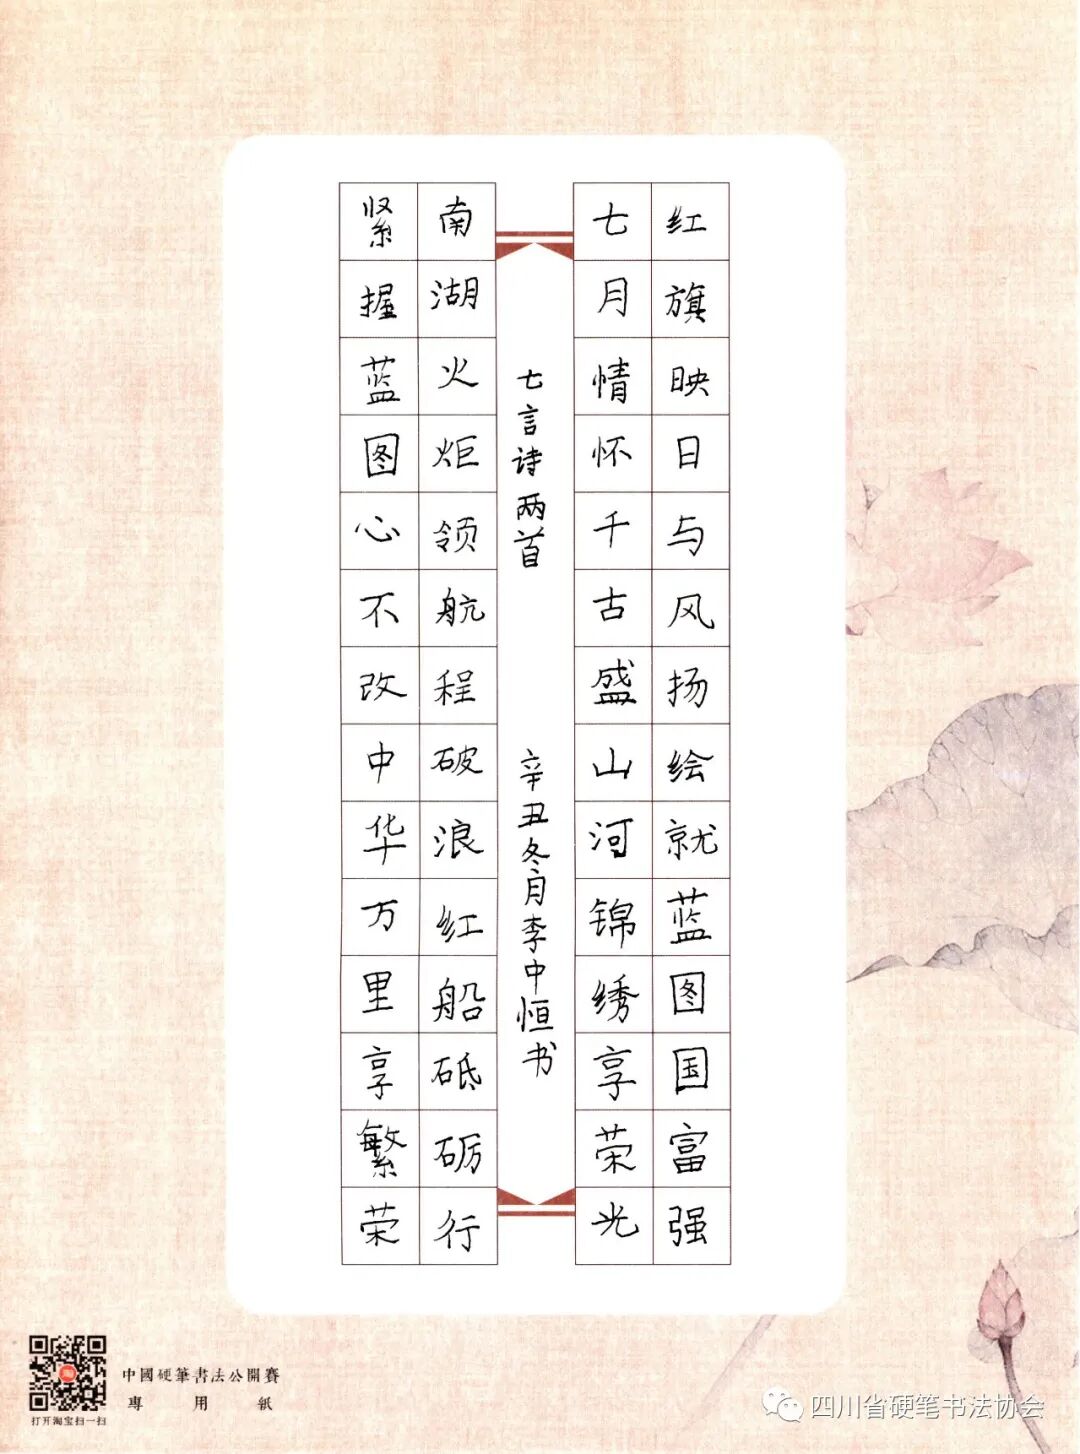 红旗映日与风扬绘就蓝图国富强
七月情怀千古盛山河锦绣享荣光
七言诗两首 辛丑冬月李中恒书
南湖火炬领航程破浪红船砥砺行
紧握蓝图心不改中华万里享繁荣
中國硬筆書法公開賽
專用紙
打开淘宝扫一扫
四川省硬笔书法协会